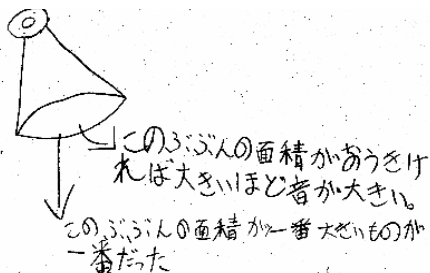 このぶぶんの面積がおうきけ
れば大きいほど音が大きい。
このぶぶんの面積が一番大きいものが
一番だった